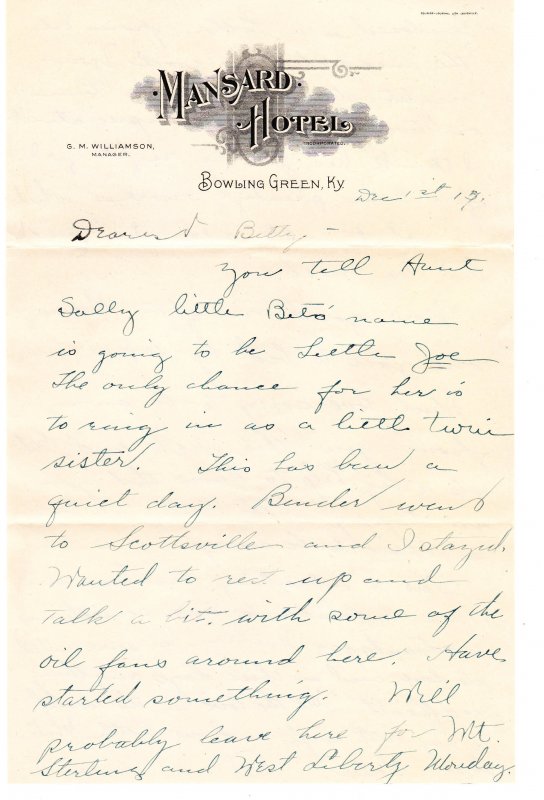 MANSARD
HOTEL
INCORPORATED.
G. M. WILLIAMSON,
MANAGER.
BOWLING GREEN, KY.
Dec 1st 19.
Dearest Betty –
You tell Aunt
Sally little Bets' name
is going to be Little Joe
The only chance for her is
to ring in as a little twin
sister. This has been a
quiet day. Bender went
to Scottsville and I stayed.
Wanted to rest up and
talk a bit. with some of the
oil fans around here. Have
started something. Will
probably leave here for Mt.
Sterling and West Liberty Monday.